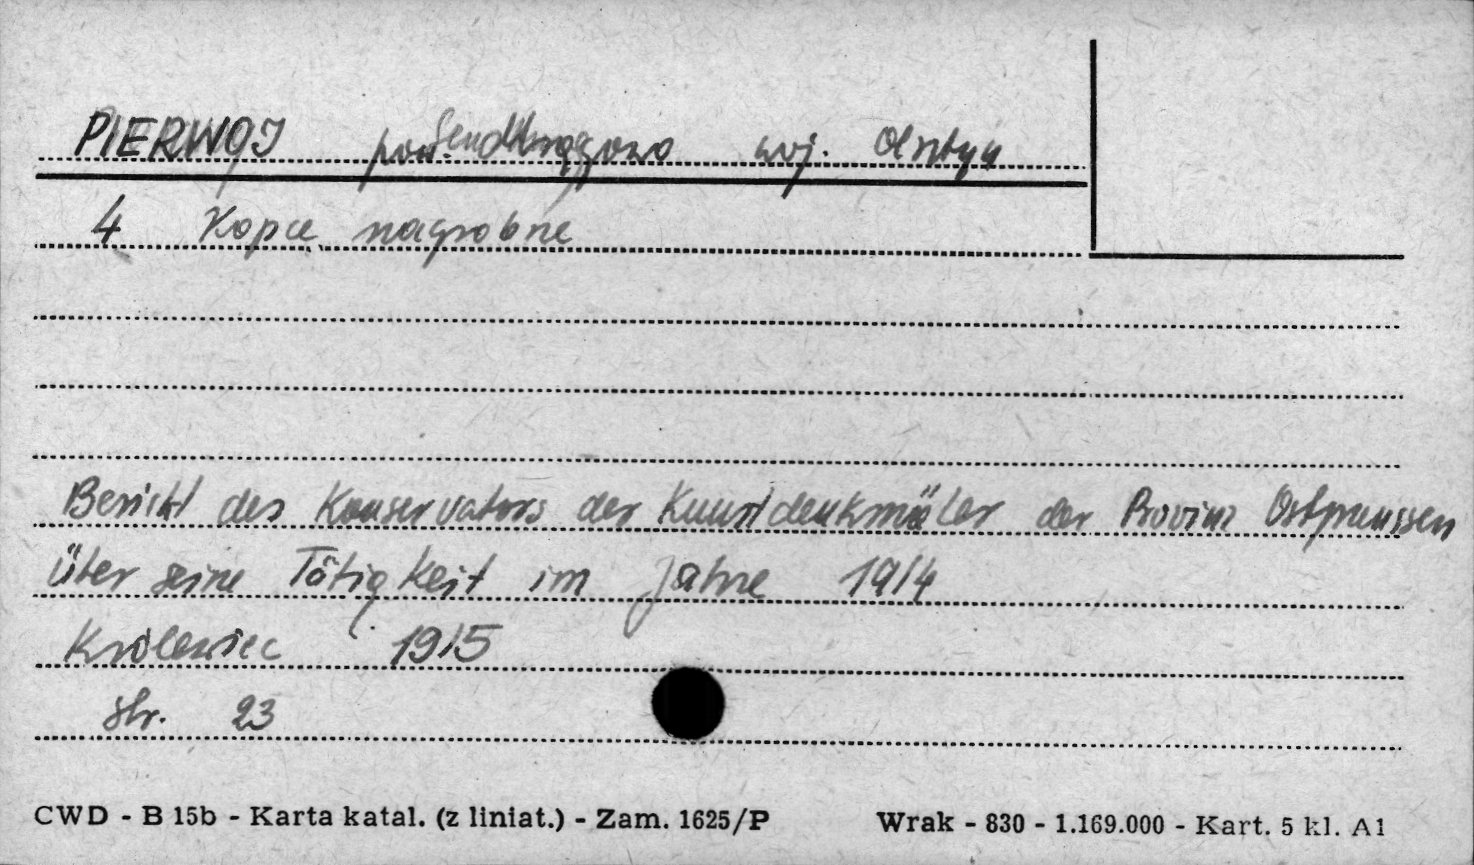 PIERWOJ pow. woj. Olsztyn
4 Kopce nagrobne
Bericht des Konservators der Kunstdenkmäler der Provinz Ostpreussen
über seine Tätigkeit im Jahre 1914
Królewiec 1915
str. 23
CWD - B 15b - Karta katal. (z liniat.) - Zam. 1625/P Wrak - 830 - 1.169.000 - Kart. 5 kl. A1